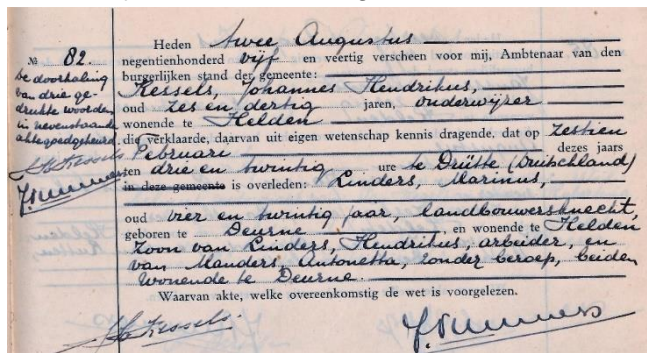 № 82.
De doorhaling
van drie ge-
drukte woorden
in nevenstaande
akte goedgekeurd.
Kessels
Heden twee Augustus
negentienhonderd vijf en veertig verscheen voor mij, Ambtenaar van den
burgerlijken stand der gemeente:
Kessels, Johannes Hendrikus,
oud zes en dertig jaren, onderwijzer
wonende te Helden
die verklaarde, daarvan uit eigen wetenschap kennis dragende, dat op zestien
Februari dezes jaars
ten drie en twintig ure te Drütte (Duitschland)
in deze gemeente is overleden: Linders, Marinus,
oud vier en twintig jaar, landbouwersknecht,
geboren te Deurne en wonende te Helden
zoon van Linders, Hendrikus, arbeider, en
van Manders, Antonetta, zonder beroep, beiden
wonende te Deurne.
Waarvan akte, welke overeenkomstig de wet is voorgelezen.
Kessels